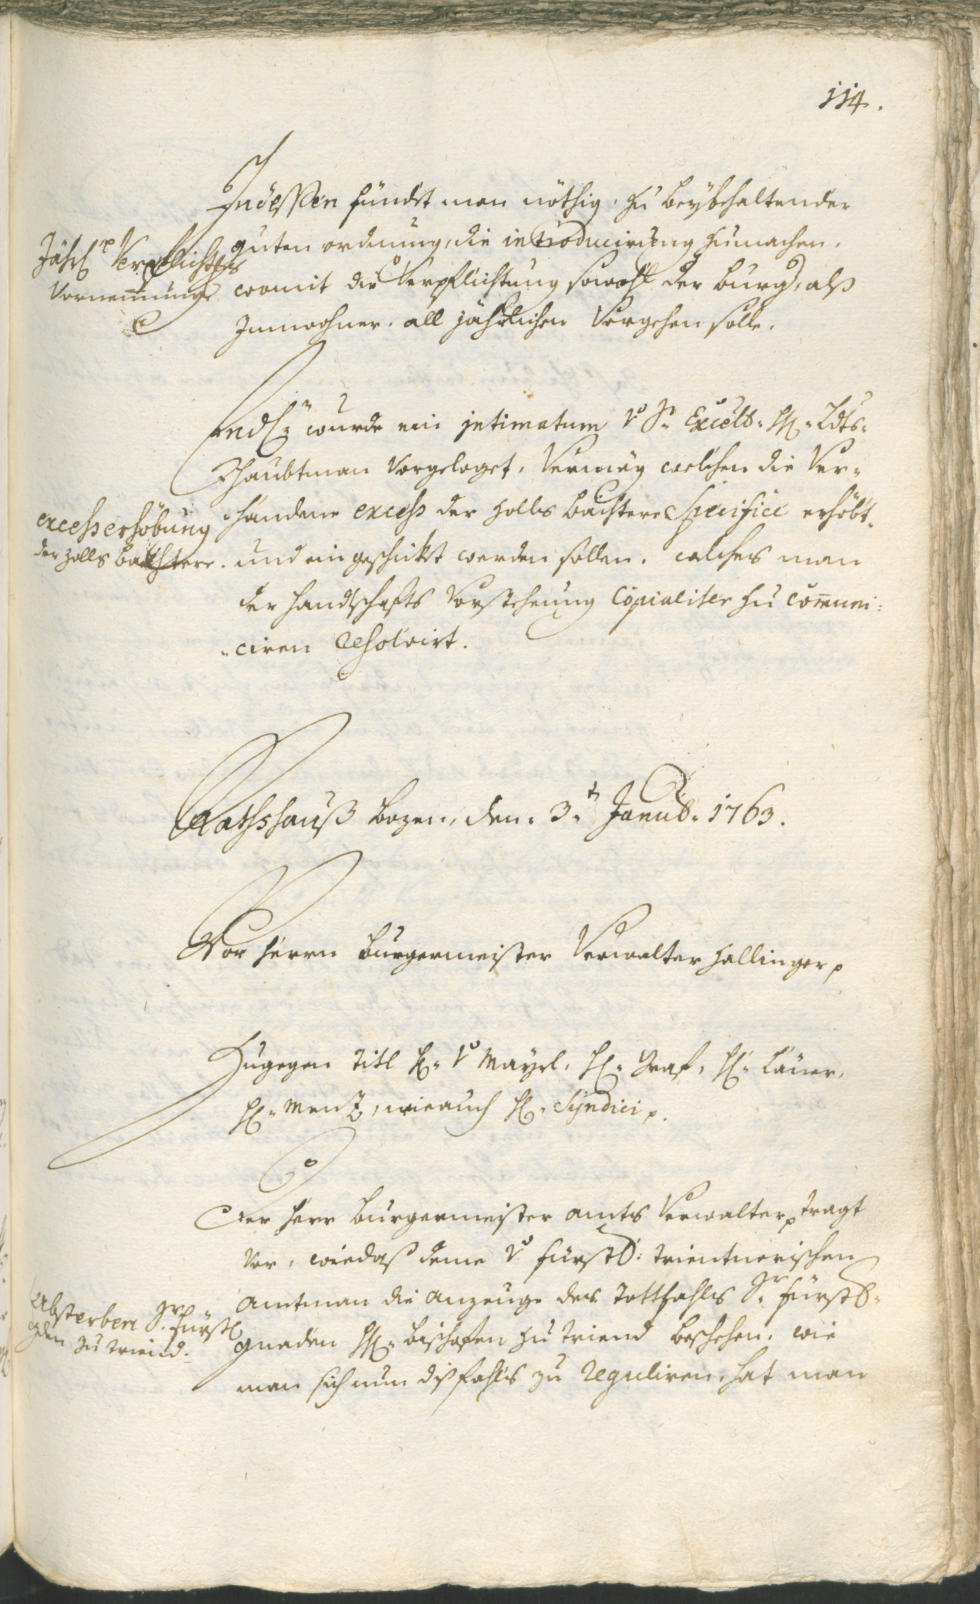 114.
Indessen fündet man nöthig, zu beybehaltender
guten ordnung, die introducirung zumachen,
womit die Verpflichtung sowohl der burg. alß
Innwohner, all jährlichen Vorgehen solle.
Jährl. Verpflicht
Vornemmung
Endl. wurde ein intimatum Sr. Excell. H. Ldts:
Haubtman Vorgeleget, Vermög welchen die Ver=
handene excess der Zolls bächtere specifice erhöbt,
und eingeschickt werden sollen. welches man
der Handtschaffts Vorstehung Copialiter zu com̅uni=
=ciren resolvirt.
excess erhöbung
der Zolls bächtere.
Rathshauß Bozen, den 3.t Janu. 1763.
Vor herrn Burgermeister Verwalter Hallinger
Zugegen Titl H. v. Mayrl, H. Graf, H. Läner,
H. Menz, wie auch H. Syndici
Der herr Burgermeister amts Verwalter tragt
Vor, wiedaß deme fürstl. trientnerischen
Amtman die anzeuge des todtfahls Sr. fürstl.
gnaden H. bischofen zu Triend beschehen. wie
man sich nun dißfahls zu reguliren, hat man
Absterben Sr. fürstl.
gden zu Triend.